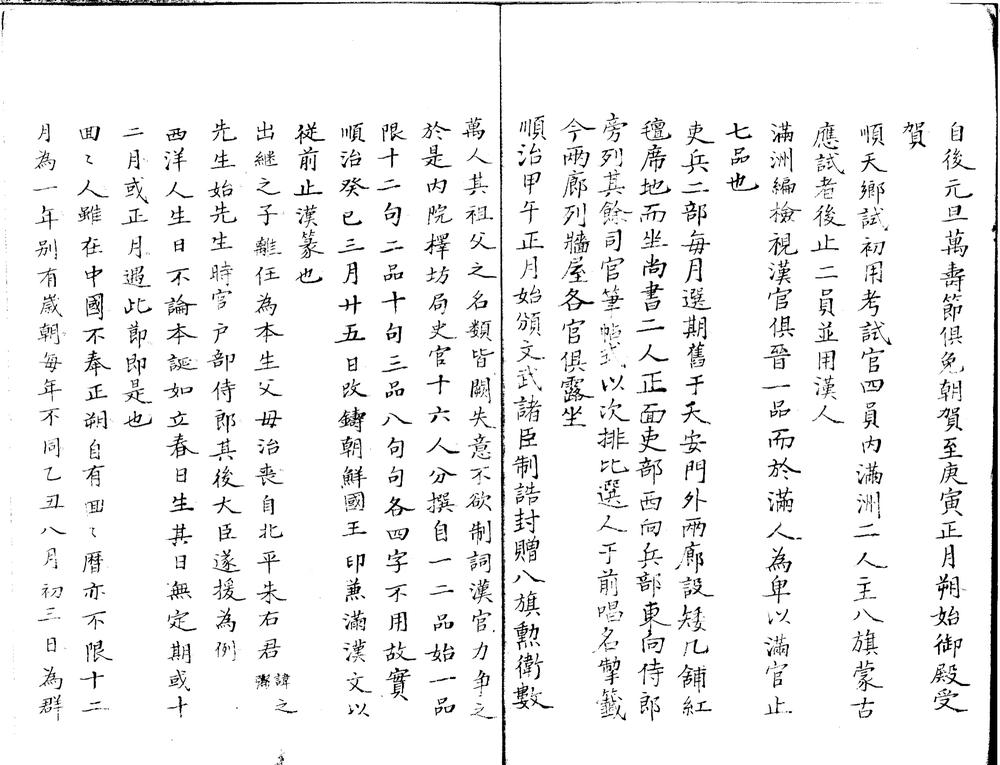 自後元旦萬壽節俱免朝賀至庚寅正月朔始御殿受
賀
順天鄉試初用考試官四員內滿洲二人主八旗蒙古
應試者後止二員並用漢人
滿洲編檢視漢官俱晉一品而於滿人為卑以滿官止
七品也
吏兵二部每月選期舊于天安門外兩廊設矮几鋪紅
氊席地而坐尚書二人正面吏部西向兵部東向侍郎
旁列其餘司官筆帖式以次排比選人于前唱名掣籤
今兩廊列牆屋各官俱露坐
順治甲午正月始頒文武諸臣制誥封贈八旗勲衛數
萬人其祖父之名類皆闕失意不欲制詞漢官力争之
於是内院擇坊局史官十六人分撰自一二品始一品
限十二句二品十句三品八句句各四字不用故實
順治癸巳三月廿五日改鑄朝鮮國王印兼滿漢文以
從前止漢篆也
出繼之子離任為本生父母治喪自北平朱右君諱之
先生始先生時官户部侍郎其後大臣遂援為例
西洋人生日不論本誕如立春日生其日無定期或十
二月或正月遇此節即是也
回〻人雖在中國不奉正朔自有回〻曆亦不限十二
月為一年别有歲朝每年不同乙丑八月初三日為群